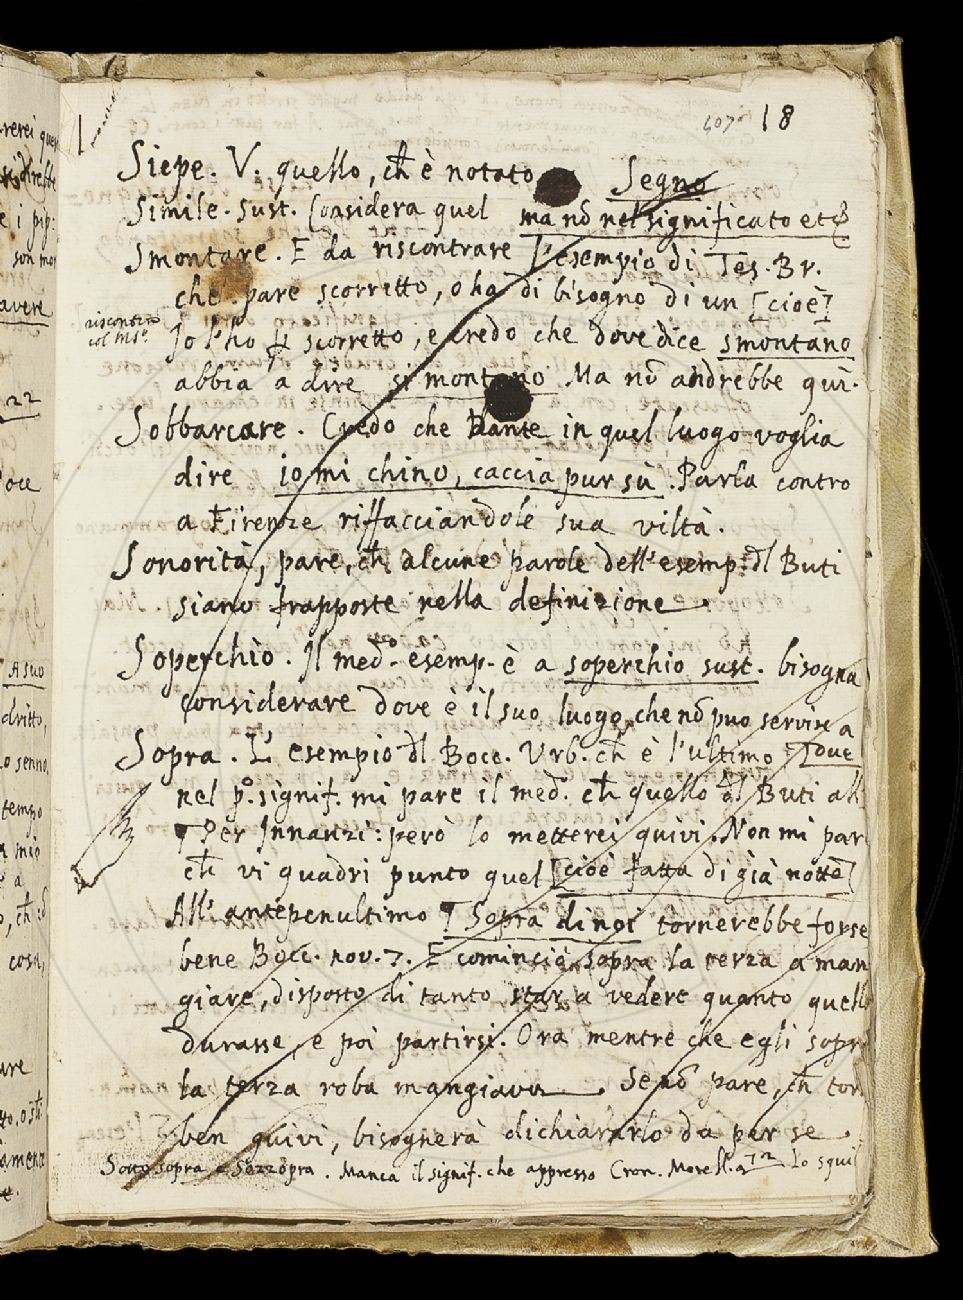 407 18
Siepe. V. quello, ch̃ è notato Segno
Simile. Sust. Considera quel ma nõ nel significato etc
Smontare. E da riscontrare l'esempio di Tes. Br.
che pare scorretto, o ha di bisogno di un [cioè]
riscontro
col ms.
Io l'ho scorretto, e credo che dove dice smontano
abbia a dire si montano Ma nõ andrebbe quì.
Sobbarcare. Credo che Dante in quel luogo voglia
dire io mi chino, caccia pur sù. Parla contro
a Firenze riffacciandole sua viltà.
Sonorità, pare, ch̃ alcune parole dell'esemp. dl Buti
siano frapposte nella definizione.
Soperchio. Il med.º esemp. è a soperchio sust. bisogna
considerare dove è il suo luogo, che nõ puo servire a
due
Sopra. L'esempio dl Bocc. Urb. ch̃ è l'ultimo
nel pº. signif. mi pare il med. ch̃ quello dl Buti al
¶ Per Innanzi: però lo metterei quivi. Non mi par
ch̃ vi quadri punto quel [cioè fatta di già notte]
All'antepenultimo ¶ Sopra di noi tornerebbe forse
bene Bocc. nov. 7. E cominciò sopra la terza a man
giare, disposto di tanto star a vedere quanto quell
durasse, e poi partirsi. Ora mentre che egli sopr
la terza roba mangiava. Se nõ pare, ch̃ tor
ben quivi, bisognerà dichiararlo da per se.
Sotto sopra e Sozzopra. Manca il signif. che appresso Cron. Morell. a 72 lo squi